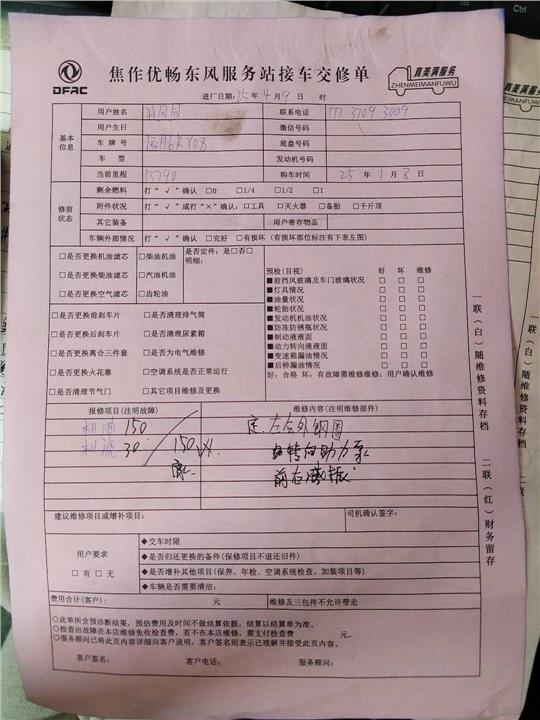 DFAC
焦作优畅东风服务站接车交修单
真美满服务
ZHENMEIMANFUWU
进厂日期：25年4月9日 时
基本信息
用户姓名
联系电话 177 3709 3009
用户生日
微信号码
车牌号
底盘号码
车型
发动机号码
当前里程 13790
购车时间 25年1月8日
修前状态
剩余燃料 打“√”确认 □0 □1/4 □1/2 □1
附件状况 打“√”或打“×”确认：□工具 □灭火器 □备胎 □千斤顶
其它装备
用户寄存物品
车辆外部情况 打“√”确认 □完好 □有损坏（有损坏部位标注有下表左图）
□是否更换机油滤芯 □柴油机油
□是否更换柴油滤芯 □汽油机油
□是否更换空气滤芯 □齿轮油
是否定件：是□否□
明细：
□是否更换前刹车片 □是否清理排气筒
□是否更换后刹车片 □是否清理尿素箱
□是否更换离合三件套 □是否为电气维修
□是否更换火花塞 □空调系统是否正常运行
□是否清理节气门 □其它项目维修及更换
预检（目视） 好 坏 维修
■前挡风玻璃及车门玻璃状况 □ □ □
■灯具情况 □ □ □
■油量状况 □ □ □
■轮胎状况 □ □ □
■发动机机油状况 □ □ □
■防冻防锈瓶状况 □ □ □
■制动液液面 □ □ □
■动力转向液液面 □ □ □
■变速箱漏油情况 □ □ □
■后桥漏油情况 □ □ □
好：合格 坏：有故障需维修维修：用户确认维修
报修项目（注明故障）
维修内容（注明维修部件）
机油 150
机滤 30
150
左右外钢圈
转向助力泵
前右减振
建议维修项目或增补项目：
司机确认签字：
用户要求
□有 □无
◆交车时限
◆是否归还更换的备件（保修项目不退还旧件）
◆是否增补其他项目（保养、年检、空调系统检查、加装项目等）
◆车辆是否需要清洁：
费用合计（客户）： 元
维修及三包件不允许带走
○此单所含预诊断结果，预估费用及时间不做结算依据，结算以结算单为准。
○检查出故障在本店维修免收检查费，若不在本店维修，需支付检查费 元。
○服务顾问已将此页内容详细向客户说明，客户签名则表示已理解并接受此页内容。
客户签名： 客户电话： 服务顾问：
一联（白）随维修资料存档
二联（红）财务留存